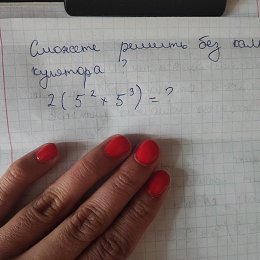 Сможете решить без каль
кулятора ?
2(5² × 5³) = ?